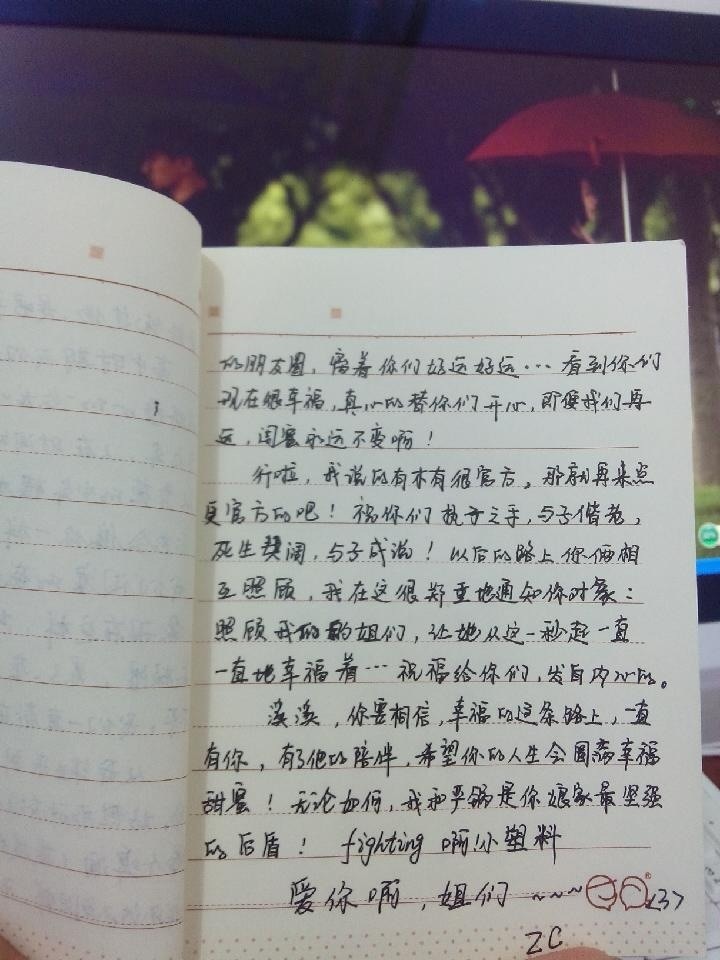 的朋友圈，看着你们好远好远… 看到你们
现在很幸福，真心的替你们开心，即使我们再
远，闺蜜永远不变啊！
行啦，我说的有木有很官方。那就再来点
更官方的吧！祝你们执子之手，与子偕老，
死生契阔，与子成说！以后的路上你俩相
互照顾，我在这很郑重地通知你对象：
照顾我的姐们，让她从这一秒起一直
一直地幸福着…祝福给你们，发自内心的。
溪溪，你要相信，幸福的这条路上，一直
有你，有了他的陪伴，希望你的人生会圆满幸福
甜蜜！无论如何，我和严锅是你娘家最坚强
的后盾！ fighting 啊小塑料
爱你啊，姐们 ~~~ <3>
ZC